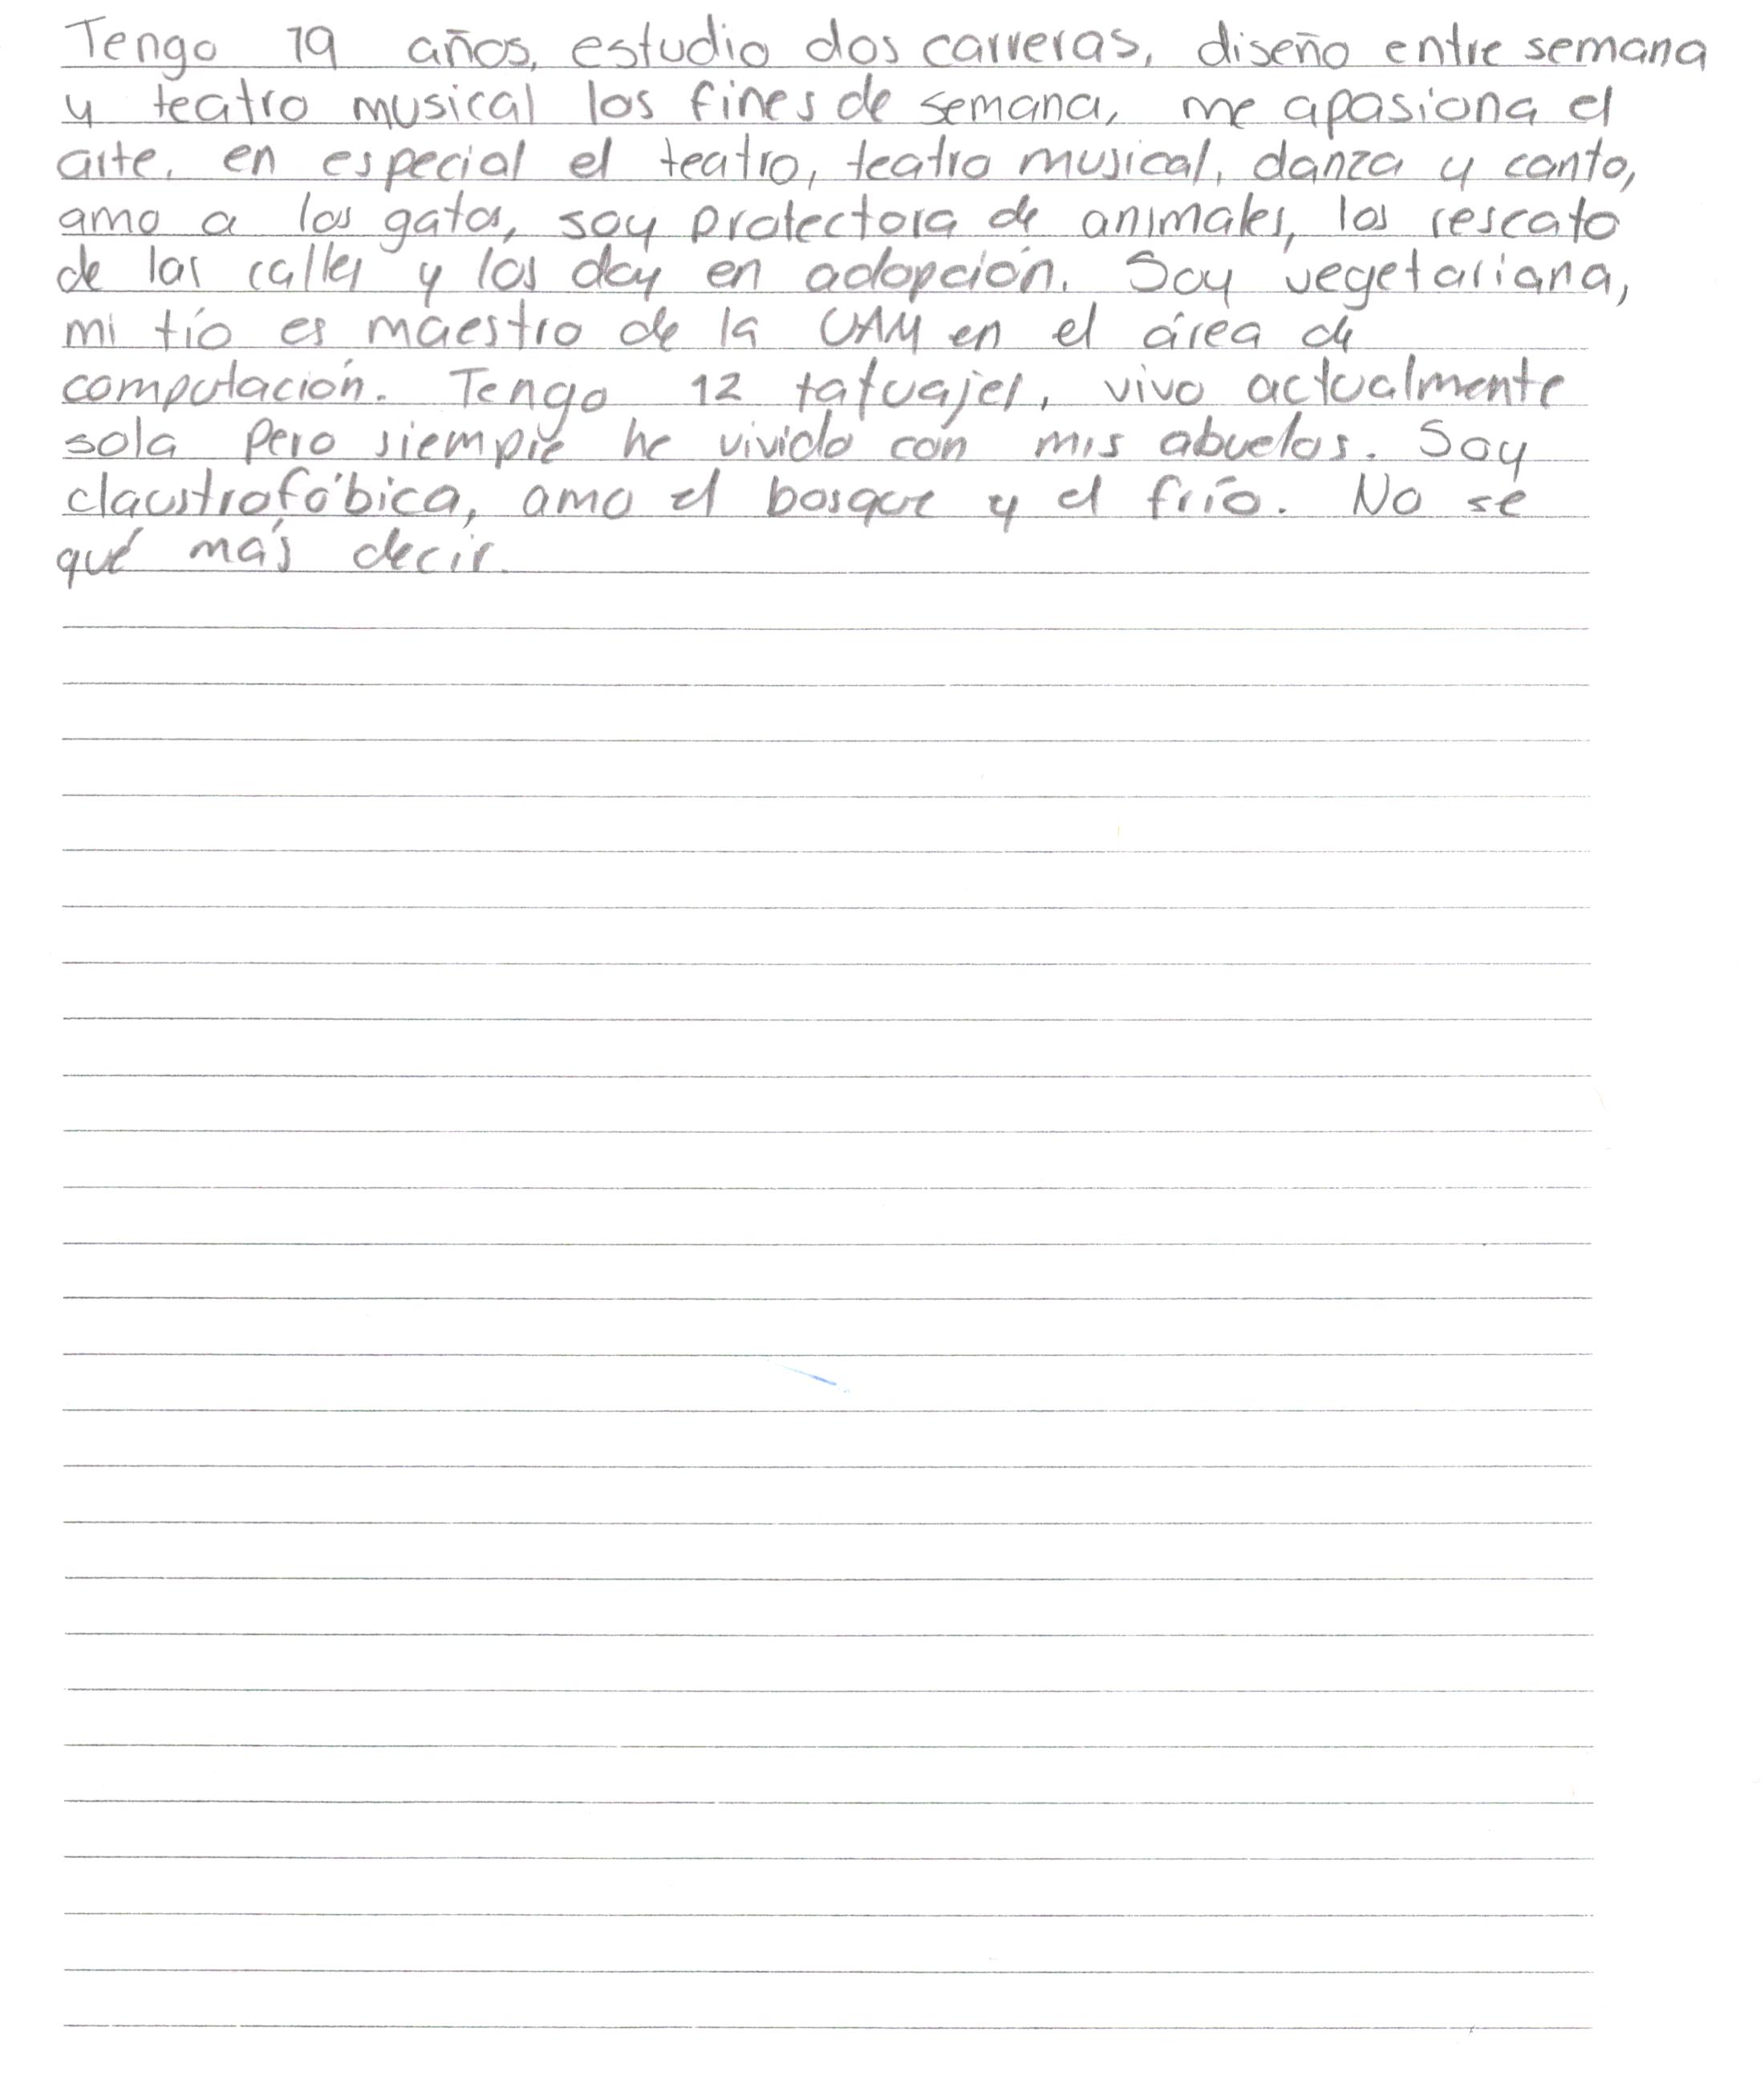 Tengo 19 años, estudio dos carreras, diseño entre semana
y teatro musical los fines de semana, me apasiona el
arte, en especial el teatro, teatro musical, danza y canto,
amo a los gatos, soy protectora de animales, los rescato
de las calles y los doy en adopción. Soy vegetariana,
mi tío es maestro de la UAM en el área de
computación. Tengo 12 tatuajes, vivo actualmente
sola pero siempre he vivido con mis abuelos. Soy
claustrofóbica, amo el bosque y el frío. No sé
qué más decir.